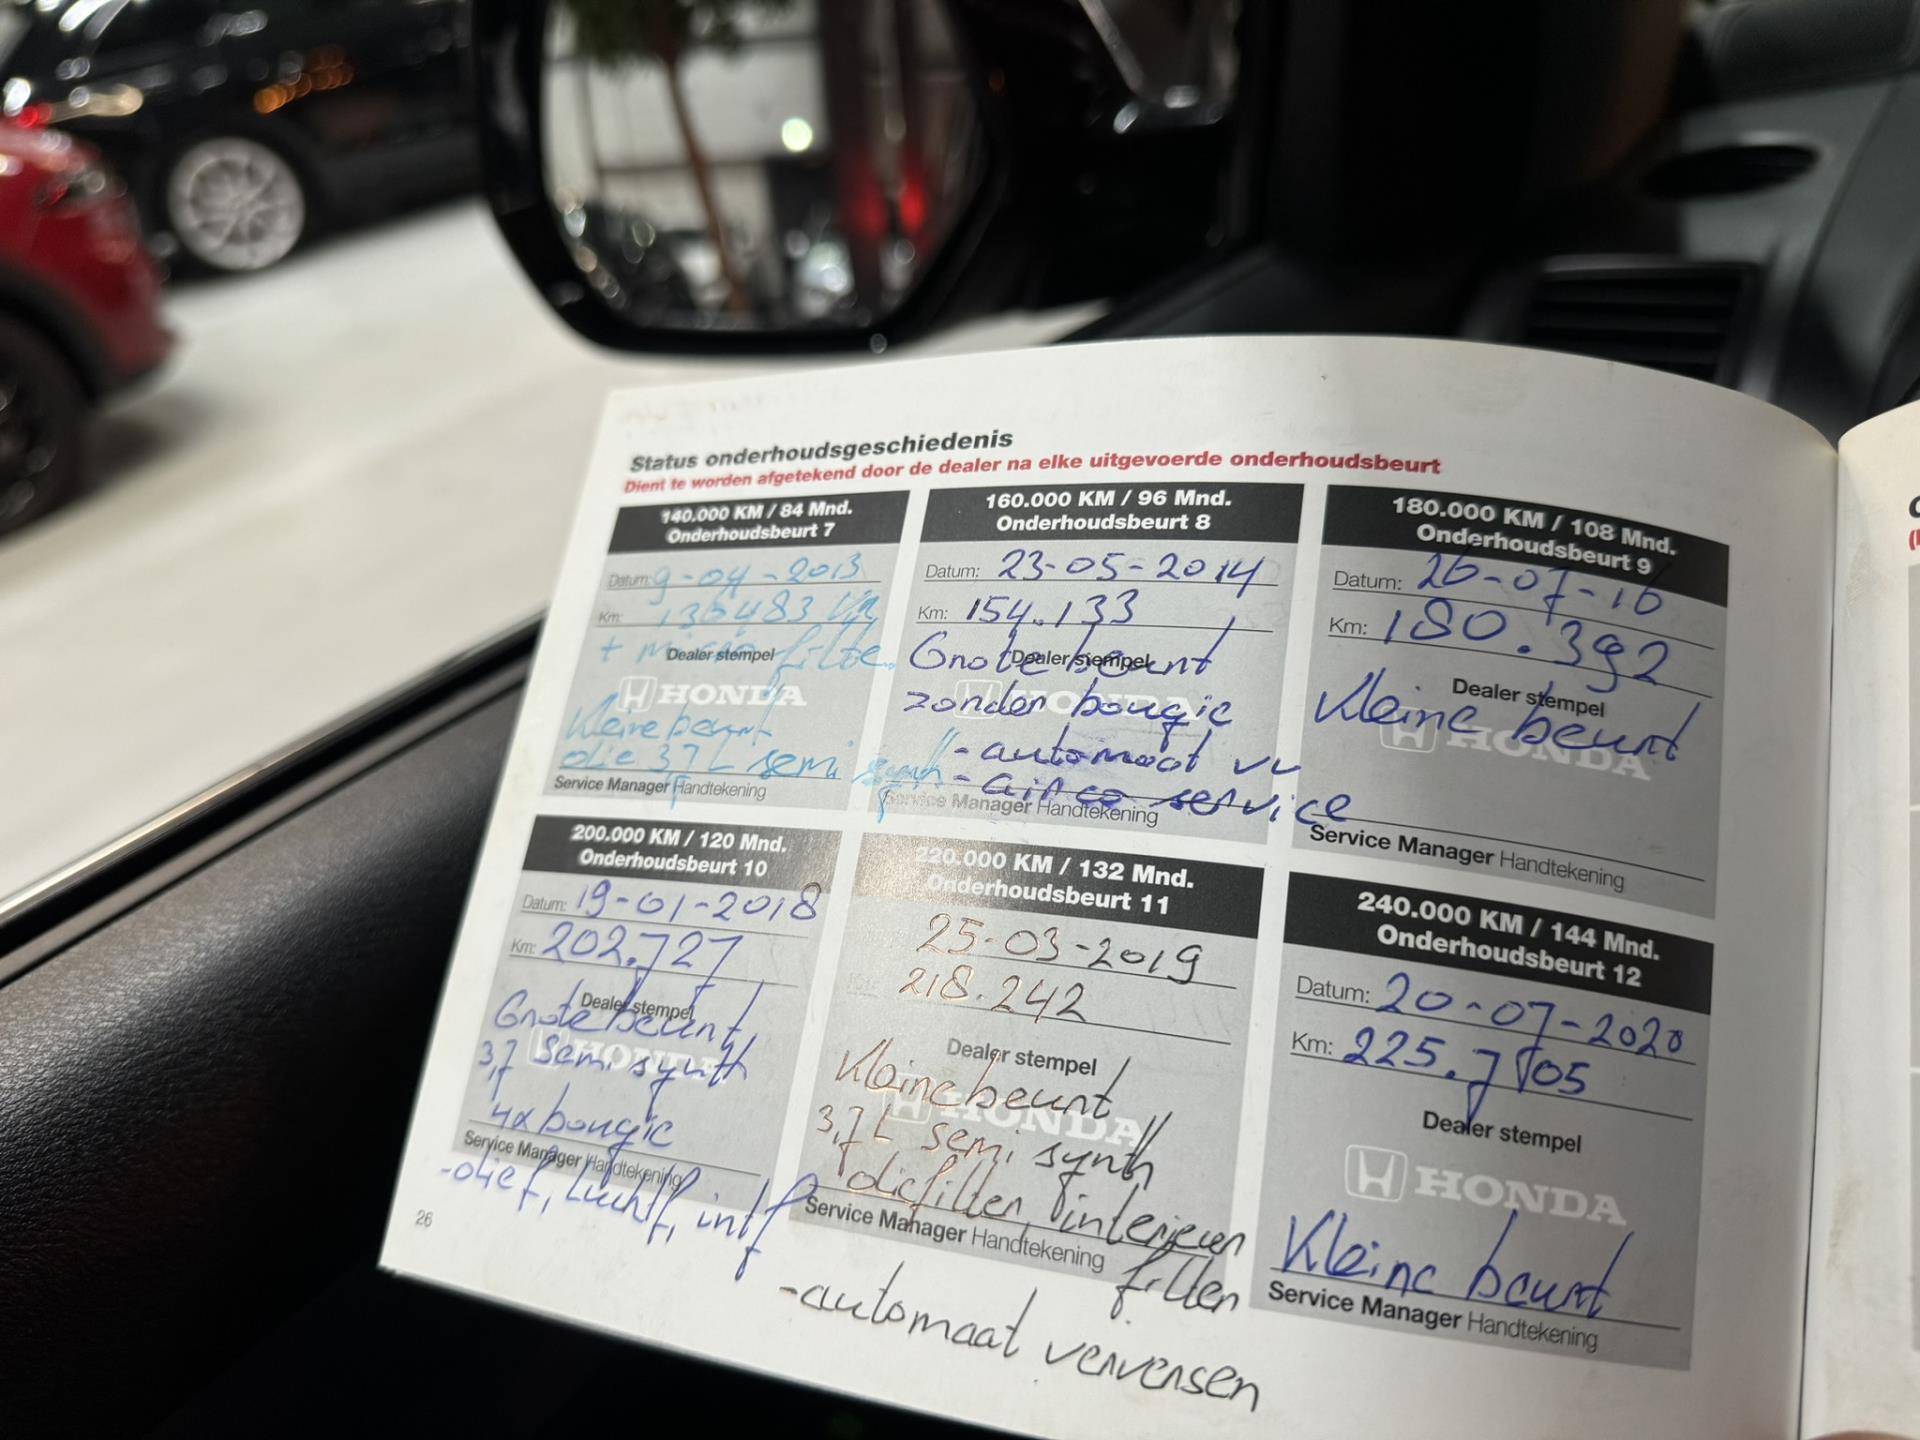 Status onderhoudsgeschiedenis
Dient te worden afgetekend door de dealer na elke uitgevoerde onderhoudsbeurt
140.000 KM / 84 Mnd.
Onderhoudsbeurt 7
Datum: 9-04-2013
Km: 136483 km
+ micro filter
Dealer stempel
HONDA
Kleine beurt
olie 3,7 L semi synth
Service Manager Handtekening
160.000 KM / 96 Mnd.
Onderhoudsbeurt 8
Datum: 23-05-2014
Km: 154.133
Dealer stempel
Grote beurt
HONDA
zonder bougie
- automaat vv
- airco service
Service Manager Handtekening
180.000 KM / 108 Mnd.
Onderhoudsbeurt 9
Datum: 26-07-16
Km: 180.392
Dealer stempel
HONDA
Kleine beurt
Service Manager Handtekening
200.000 KM / 120 Mnd.
Onderhoudsbeurt 10
Datum: 19-01-2018
Km: 202.727
Dealer stempel
Grote beurt
HONDA
3,7 semi synth
4x bougie
Service Manager Handtekening
- olief, luchtf, intf
220.000 KM / 132 Mnd.
Onderhoudsbeurt 11
25-03-2019
218.242
Dealer stempel
Kleine beurt
HONDA
3,7 L semi synth
oliefilter, interieur
filter
Service Manager Handtekening
- automaat verversen
240.000 KM / 144 Mnd.
Onderhoudsbeurt 12
Datum: 20-07-2020
Km: 225.705
Dealer stempel
HONDA
Kleine beurt
Service Manager Handtekening
26